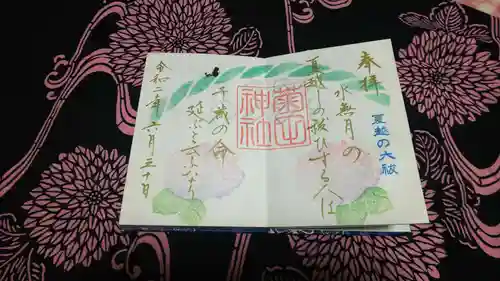 奉拝
夏越の大祓
水無月の
夏越しの祓ひする人は
千歳の命
延ぶと云ふなり
令和二年六月三十日
神社